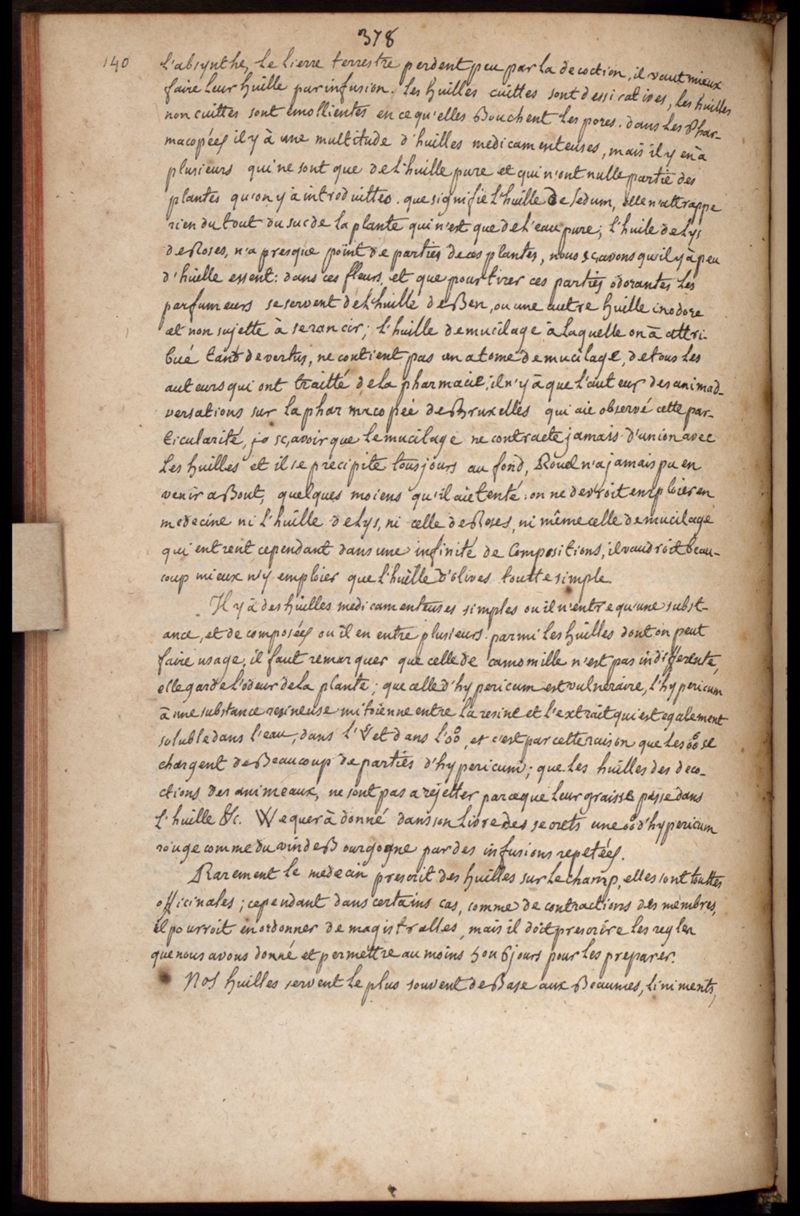 378
140
L'absynthe, Le Lierre terrestre perdent peu par la decoction, il vaut mieux
faire leur huille par infusion. Les huilles cuittes sont dessicatives, les huilles
non cuittes sont emollientes en ce qu'elles Bouchent les pores. dans Les Phar-
macopées il y à une multitude d'huilles medicamenteuses, mais il y en à
plusieurs qui ne sont que de L'huille pure et qui n'ont nulle partie des
plantes qu'on y à introduittes. que signifie l'huille de sedum, elle n'attrappe
rien du tout du suc de la plante qui n'est que de L'eau pure; L'huile de Lys
de Roses, n'a presque point de parties de ces plantes, nous sçavons qu'il y à peu
d'huille essent: dans ces fleurs, et que pour tirer ces parties odorantes Les
parfumeurs se servent de L'huille de Ben, ou une autre huille inodore
et non sujette à se rancir; L'huille de mucilage à laquelle on à attri-
bué tant de vertus, ne contient pas un atome de mucilage, de tous Les
auteurs qui ont traitté de la pharmacie, il n'y à que l'auteur des animad-
versations sur la pharmacopée de Bruxelles qui aie observé cette par-
ticularité, je sçavoir que le mucilage ne contracte jamais d'union avec
Les huilles et il se precipite tousjours au fond, Rouel n'a jamais pu en
venir a Bout, quelques moiens qu'il aie tenté: on ne devroit emploier en
medecine ni L'huille de Lys, ni celle de Roses, ni même celle de mucilage
qui entrent cependant dans une infinité de Compositions, il vaudroit beau-
coup mieux n'y emploier que L'huille d'olives toutte simple.
Il y à des huilles medicamenteuses simples ou il n'entre qu'une subst-
ance, et de composées ou il en entre plusieurs. parmi les huilles dont on peut
faire usage, il faut remarquer que celle de camomille n'est pas indifferente,
elle garde l'odeur de la plante; que celle d'hypericum est vulneraire, l'hypericum
à une substance resineuse mitoienne entre la resine et l'extrait qui est egalement
soluble dans l'eau, dans l' et dans l'oo, et c'est par cette raison que Les oo se
chargent de Beaucoup de parties d'hypericum; que Les huilles des deco-
ctions des animeaux, ne sont pas a rejetter parceque leur graisse passe dans
L'huille &c. Wequer à donné dans son Livre des secrets une oo d'hypericum
rouge comme du vin de Bourgogne par des infusions repetées.
Rarement le medecin prescrit des huilles sur le champ, elles sont touttes
officinales; cependant dans certains cas, comme de contractions des membres,
il pourroit en ordonner de magistralles, mais il doit prescrire les regles
que nous avons donné et permettre au moins 5 ou 6 jours pour les preparer.
Nos huilles servent le plus souvent de Base aux Beaumes, Liniments,